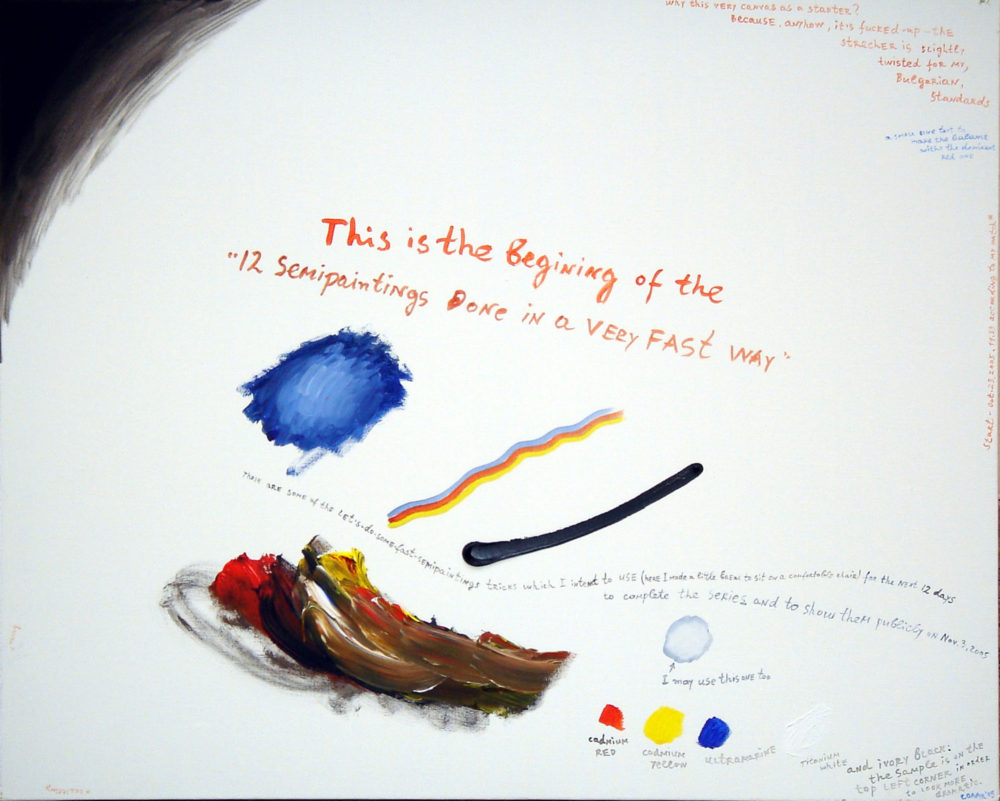 why this very canvas as a starter?
Because, anyhow, it's fucked-up - the
strecher is slightly
twisted for my,
Bulgarian,
standards
a small blue text to
make the balance
with the dominant
red one
This is the Begining of the
"12 Semipaintings Done in a VERY FAST WAY"
Start - Oct. 23, 2005, 11:23
These are some of the let's-do-some-fast-semipaintings tricks which I intent to USE (here I made a little break to sit on a comfortable chair) for the next 12 days
to complete the series and to show them publicly on Nov. 3, 2005
I may use this one too
cadmium
RED
cadmium
yellow
ultramarine
Titanium
white
and ivory Black:
the sample is on the
top LEFT corner in order
to look more
dramatic.